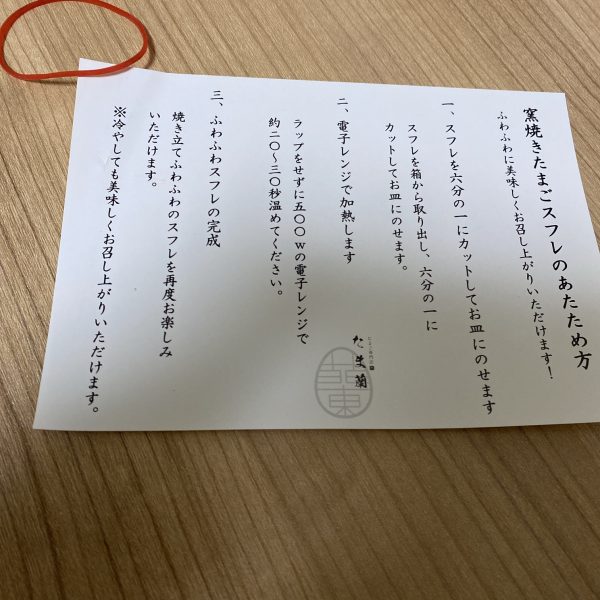 窯焼きたまごスフレのあたため方
ふわふわに美味しくお召し上がりいただけます!
一、スフレを六分の一にカットしてお皿にのせます
スフレを箱から取り出し、六分の一に
カットしてお皿にのせます。
二、電子レンジで加熱します
ラップをせずに五〇〇wの電子レンジで
約二〇〜三〇秒温めてください。
三、ふわふわスフレの完成
焼き立てふわふわのスフレを再度お楽しみ
いただけます。
※冷やしても美味しくお召し上がりいただけます。
たま蘭